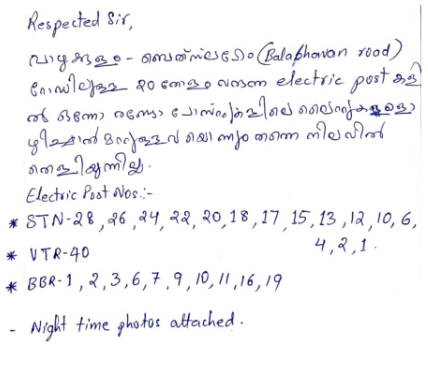 Respected Sir,
വാഴക്കുളം - ബെത്‌ലഹേം (Balabhavan road)
റോഡിലുള്ള 20 ഓളം വരുന്ന electric post കളി
ൽ ഒന്നോ രണ്ടോ പോസ്റ്റുകളിലെ ലൈറ്റുകളൊ
ഴിച്ചാൽ മറ്റുള്ളവ യൊന്നും തന്നെ നിലവിൽ
തെളിയുന്നില്ല.
Electric Post Nos:-
* STN-28, 26, 24, 22, 20, 18, 17, 15, 13, 12, 10, 6,
4, 2, 1.
* VTR-40
* BBR-1, 2, 3, 6, 7, 9, 10, 11, 16, 19
- Night time photos attached.